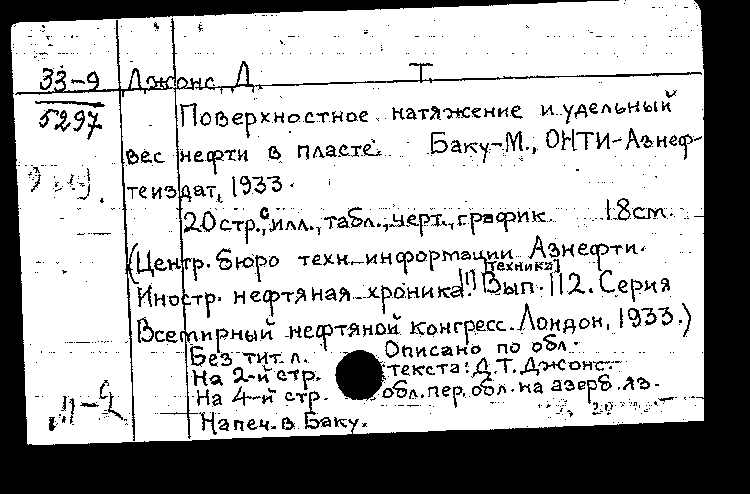 33-9 Джонс, Д. Т.
5297 Поверхностное натяжение и удельный
вес нефти в пласте. Баку-М., ОНТИ-Азнеф-
теиздат, 1933.
20 стр., с илл., табл., черт., график. 18 cm.
(Центр. бюро техн. информации Азнефти.
[техника]
Иностр. нефтяная хроника. [1] Вып. 112. Серия
Всемирный нефтяной конгресс. Лондон, 1933.)
Без тит. л. Описано по обл.
На 2-й стр. текста: Д. Т. Джонс.
На 4-й стр. обл. пер. обл. на азерб. яз.
Напеч. в Баку.